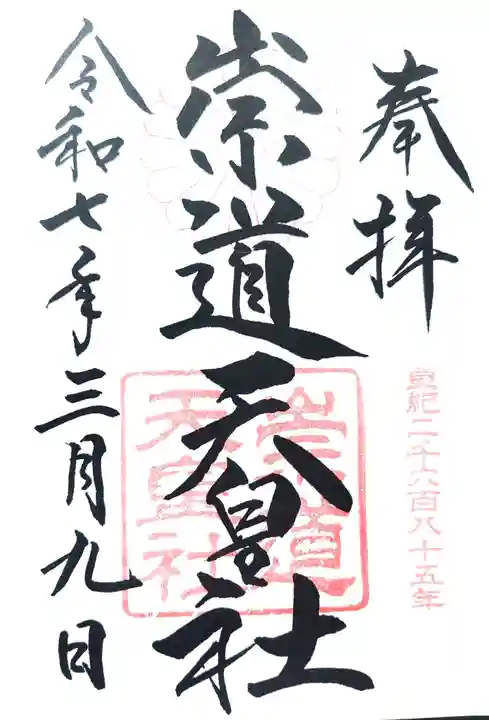 奉拝
皇紀二千六百八十五年
崇道天皇社
崇道
天皇社
令和七年三月九日